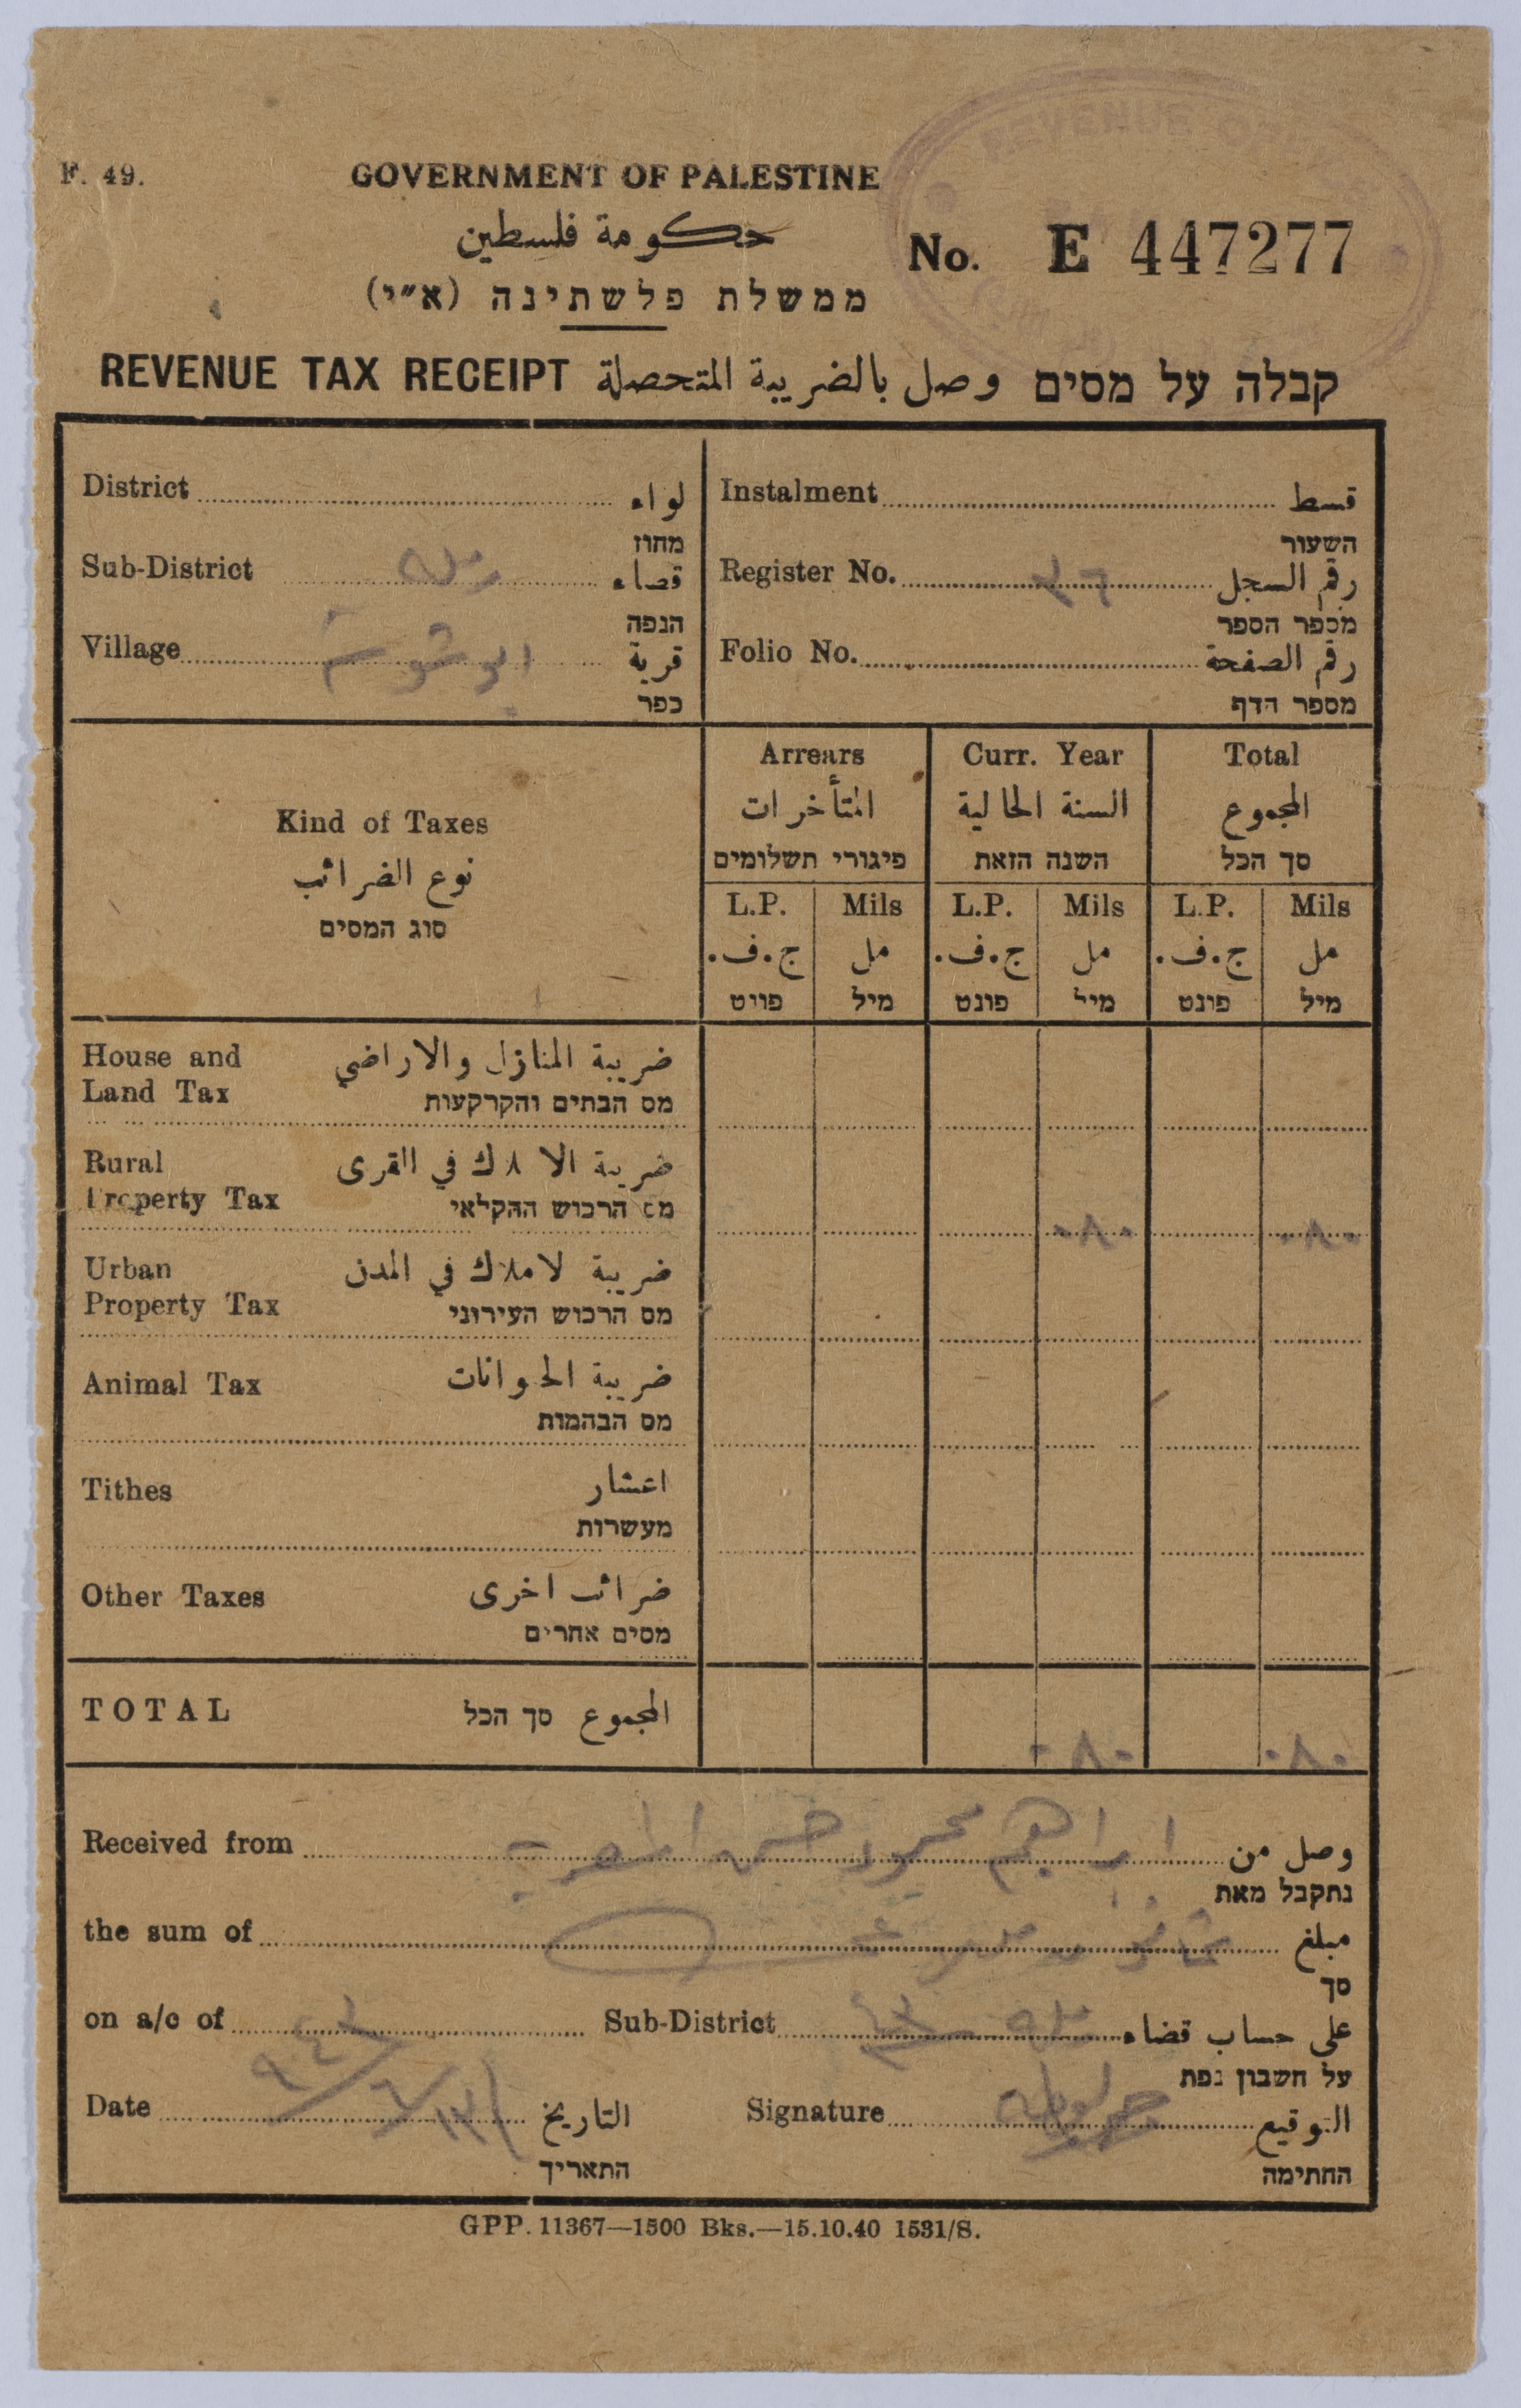 F. 49.
GOVERNMENT OF PALESTINE
حكومة فلسطين
ממשלת פלשתינה (א״י)
No. E 447277
REVENUE TAX RECEIPT وصل بالضريبة المتحصلة קבלה על מסים
District لواء
מחוז
Sub-District رملة قضاء
הנפה
Village ابو شوشة قرية
כפר
Instalment قسط
השעור
Register No. رقم السجل
מספר הספר
Folio No. رقم الصفحة
מספר הדף
Kind of Taxes
نوع الضرائب
סוג המסים
Arrears Curr. Year Total
المتأخرات السنة الحالية المجموع
פיגורי תשלומים השנה הזאת סך הכל
L.P. Mils L.P. Mils L.P. Mils
ج.ف. مل ج.ف. مل ج.ف. مل
פונט מיל פונט מיל פונט מיל
House and ضريبة المنازل والاراضي
Land Tax מס הבתים והקרקעות
Rural ضريبة الاملاك في القرى
Property Tax מס הרכוש החקלאי ٠٨٠ ٠٨٠
Urban ضريبة لاملاك في المدن
Property Tax מס הרכוש העירוני
Animal Tax ضريبة الحيوانات
מס הבהמות
Tithes اعشار
מעשרות
Other Taxes ضرائب اخرى
מסים אחרים
TOTAL المجموع סך הכל ٠٨٠ ٠٨٠
Received from ابراهيم محمود حسن وصل من
נתקבל מאת
the sum of ثمانون مل مبلغ
סך
on a/c of Sub-District رملة على حساب قضاء
על חשבון נפת
Date التاريخ Signature التوقيع
התאריך החתימה
GPP. 11367—1500 Bks.—15.10.40 1531/S.